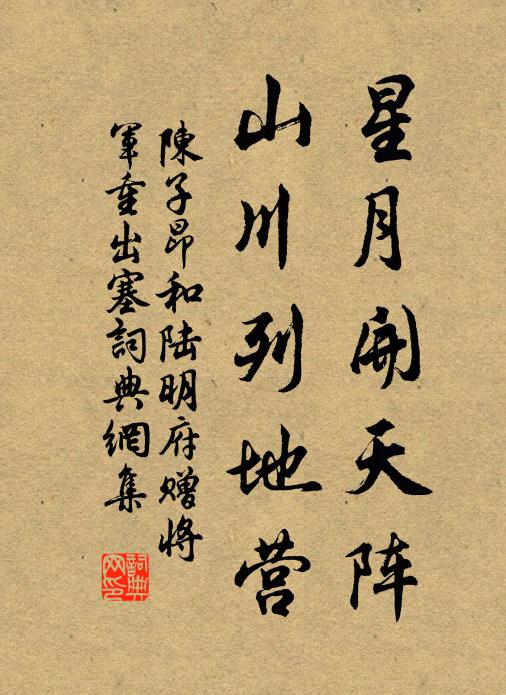 星月開天阵
山川列地营
陳子昂和陆明府赠將
軍重出塞詞典網集
詞典网印